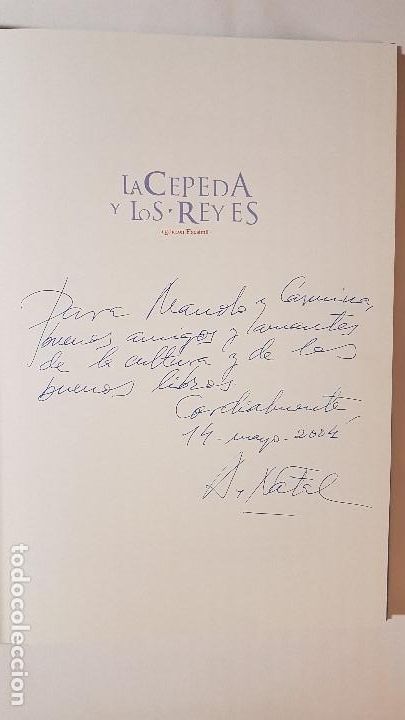 LA CEPEDA
Y LOS · REYES
(Edición Facsímil)
Para Manolo y Carmina,
buenos amigos y amantes
de la cultura y de los
buenos libros
Cordialmente
14-mayo-2004
A. Natal
todocoleccion